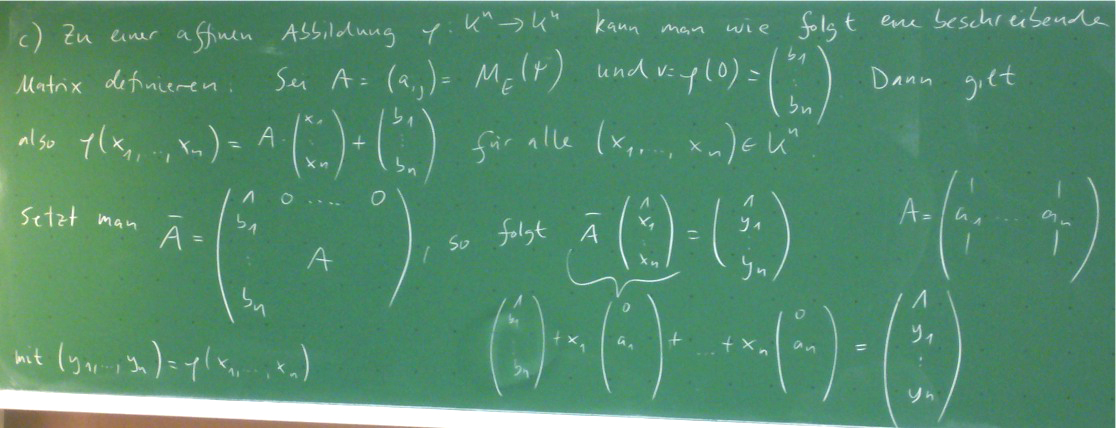 c) Zu einer affinen Abbildung φ: Kⁿ → Kⁿ kann man wie folgt eine beschreibende
Matrix definieren: Sei A = (a_ij) = M_E(Ψ) und v = φ(0) = (b₁ ⋮ bₙ) Dann gilt
also φ(x₁, .., xₙ) = A · (x₁ ⋮ xₙ) + (b₁ ⋮ bₙ) für alle (x₁, ..., xₙ) ∈ Kⁿ.
Setzt man Ā = (1 0 .... 0 b₁ ⋮ A bₙ), so folgt Ā (1 x₁ ⋮ xₙ) = (1 y₁ ⋮ yₙ) A = (| | a₁ .... aₙ | |)
mit (y₁, .., yₙ) = φ(x₁, ..., xₙ) (1 b₁ ⋮ bₙ) + x₁ (0 a₁) + ... + xₙ (0 aₙ) = (1 y₁ ⋮ yₙ)